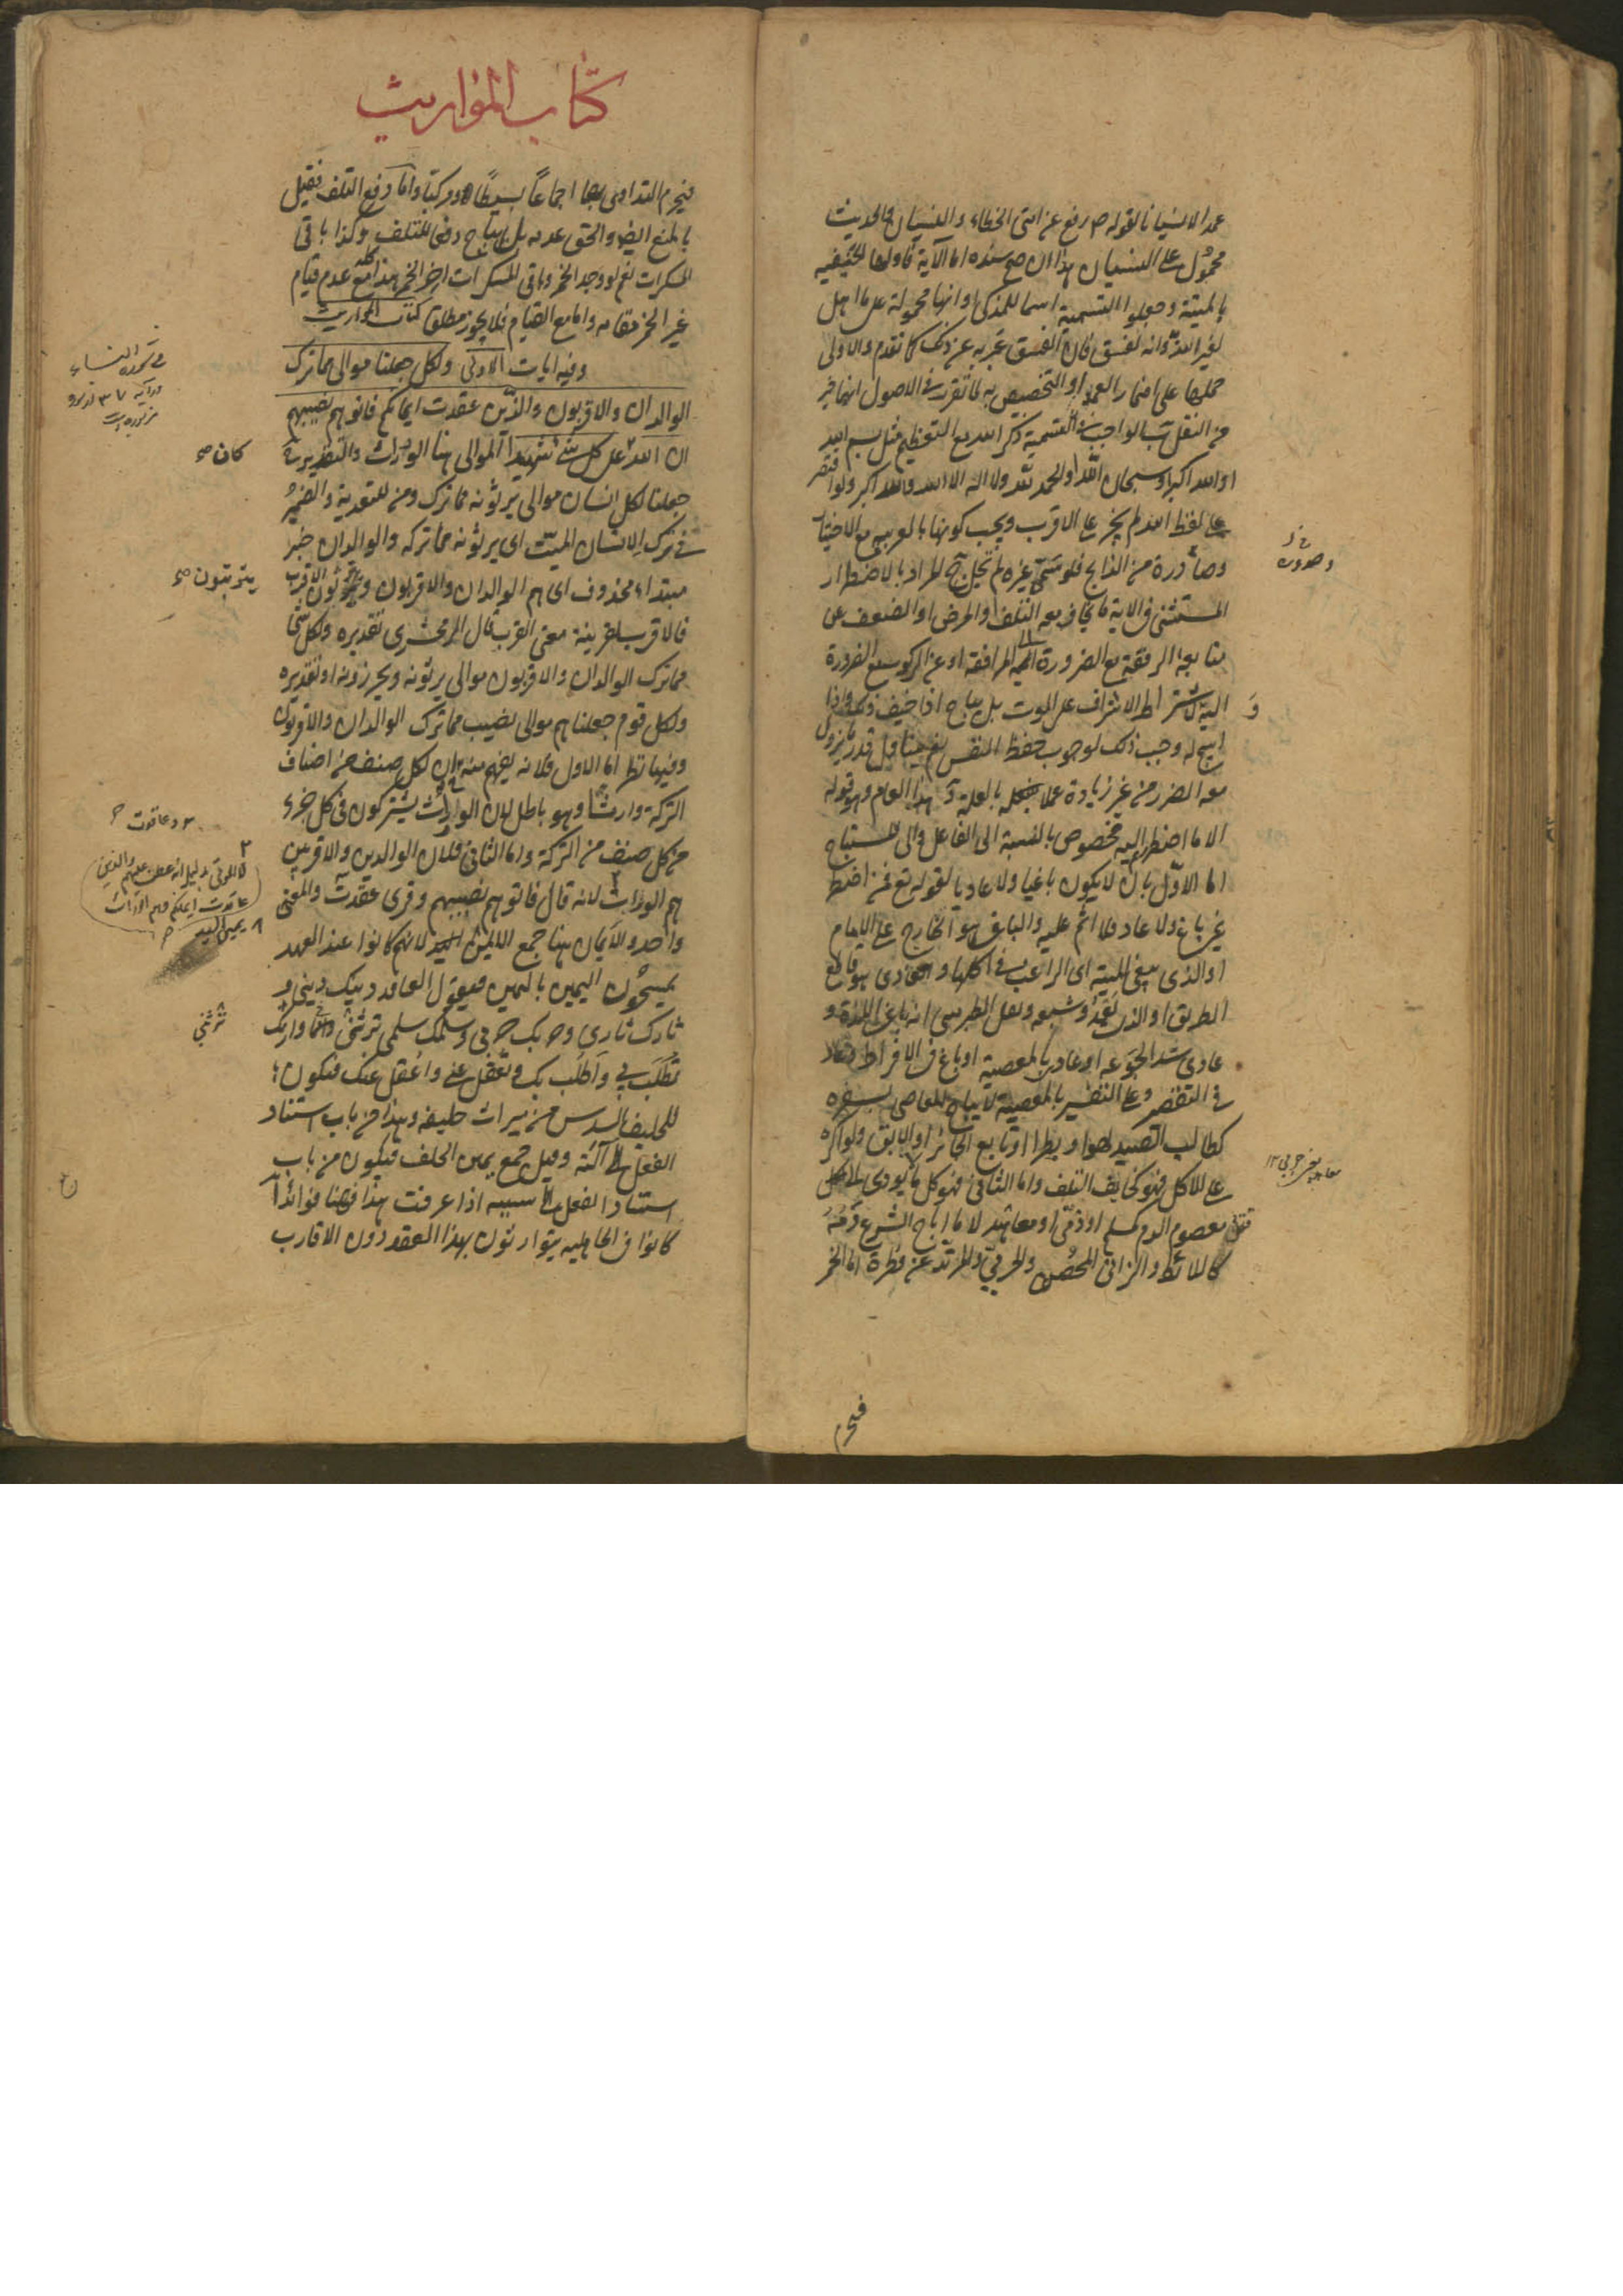 عمدا لا نسيانا لقوله ص رفع عن امتى الخطاء والنسيان والحديث
محمول على النسيان هذا ان صح سنده اما الآية فاولها الحنفيه
بالميتة وجعلوا التسمية اسما للمذكى او انها محمولة على ما اهل
لغير الله وانه لفسق فان الفسق عبر به عن ذلك كما تقدم والاولى
حملها على اضمار العمد او التخصيص به لما تقرر فى الاصول انهما خير
من النقل ب الواجب فى التسمية ذكر الله مع التعظيم مثل بسم الله
او الله اكبر او سبحان الله او الحمد لله ولا اله الا الله والله اكبر ولو اقتصر
على لفظ الله لم يجز على الاقرب ويجب كونها بالعربيه مع الاختيار
وصادرة من الذابح فلو سمى غيره لم تحل ج المراد بالاضطرار
المستثنى فى الآية ما يخاف معه التلف او المرض او الضعف عن
متابعة الرفقة مع الضرورة الى المرافقة او عن الركوب مع الضرورة
اليه ولا يشترط الاشراف على الموت بل يباح اذا خيف ذلك واذا
ابيح له وجب ذلك لوجوب حفظ النفس نعم يتناول قدر ما يزول
معه الضرر من غير زيادة عملا بالعلة د هذا العام وهو قوله
الا ما اضطررتم اليه مخصوص بالنسبة الى الفاعل والى المستباح
اما الاول بان لا يكون باغيا ولا عاديا لقوله تع فمن اضطر
غير باغ ولا عاد فلا اثم عليه والباغى هو الخارج على الامام
او الذى يبغى الميتة اى الراغب فى اكلها والعادى هو قاطع
الطريق او الذى يعدو شبعه ونقل الطبرسى انه باغى اللذة و
عادى سد الجوعه او عاد بالمعصية او باغ فى الافراط وعاد
فى التقصير وعلى التفسير بالمعصية لا يباح للعاصى بسفره
كطالب الصيد لهوا وبطرا او تابع الجائر او الآبق ولو اكره
على الاكل فهو كخايف التلف واما الثانى فهو كل ما يودى الى
قتل معصوم الدم كمسلم او ذمى او معاهد لا ما اباح الشرع دمه
كاللائط والزانى المحصن والحربى والمرتد عن فطرة اما الخمر
وصدوره
و
فيحرم
كتاب المواريث
فيحرم التداوى بها اجماعا بسيطا ومركبا واما دفع التلف فقيل
بالمنع ايضا والحق عدمه بل يباح دفعا للتلف وكذا باقى
المسكرات نعم لو وجد الخمر وباقى المسكرات اخر الخمر هذا كله مع عدم قيام
غير الخمر مقامه واما مع القيام فلا يجوز مطلقا كتاب المواريث
وفيه ايات الاولى ولكل جعلنا موالى مما ترك
الوالدان والاقربون والذين عقدت ايمانكم فاتوهم نصيبهم
ان الله على كل شئ شهيدا الموالى هنا الوراث والتقدير
جعلنا لكل انسان موالى يرثونه مما ترك ومن للتعدية والضمير
فى ترك للانسان الميت اى يرثونه مما تركه والوالدان خبر
مبتداء محذوف اى هم الوالدان والاقربون ويرثون الاقرب
فالاقرب لقرينة معنى القرب قال الزمخشرى تقديره ولكل شئ
مما ترك الوالدان والاقربون موالى يرثونه ويحرزونه او تقديره
ولكل قوم جعلناهم موالى نصيب مما ترك الوالدان والاقربون
وفيهما نظر اما الاول فلانه يفهم منه ان لكل صنف من اصناف
التركة وارثا وهو باطل لان الوراث يشتركون فى كل جزء
من كل صنف من التركة واما الثانى فلان الوالدين والاقربين
هم الوراث لانه قال فاتوهم نصيبهم وقرى عقدت والمعنى
واحد والايمان هنا جمع اليمين لانهم كانوا عند العهد
يمسحون اليمين باليمين فيقول العاقد دينك دينى و
ثارك ثارى وحربك حربى وسلمك سلمى ترثنى وارثك
تطلب بى واطلب بك وتعقل عنى واعقل عنك فيكون
للحليف السدس من ميراث حليفه وهذا من باب استناد
الفعل الى آلته وقيل جمع يمين الحلف فيكون من باب
استناد الفعل الى سببه اذا عرفت هذا فهنا فوائد ا
كانوا فى الجاهليه يتوارثون بهذا العقد دون الاقارب
كان
يترتبون
وعاقدت
يمين اليد
ترثنى